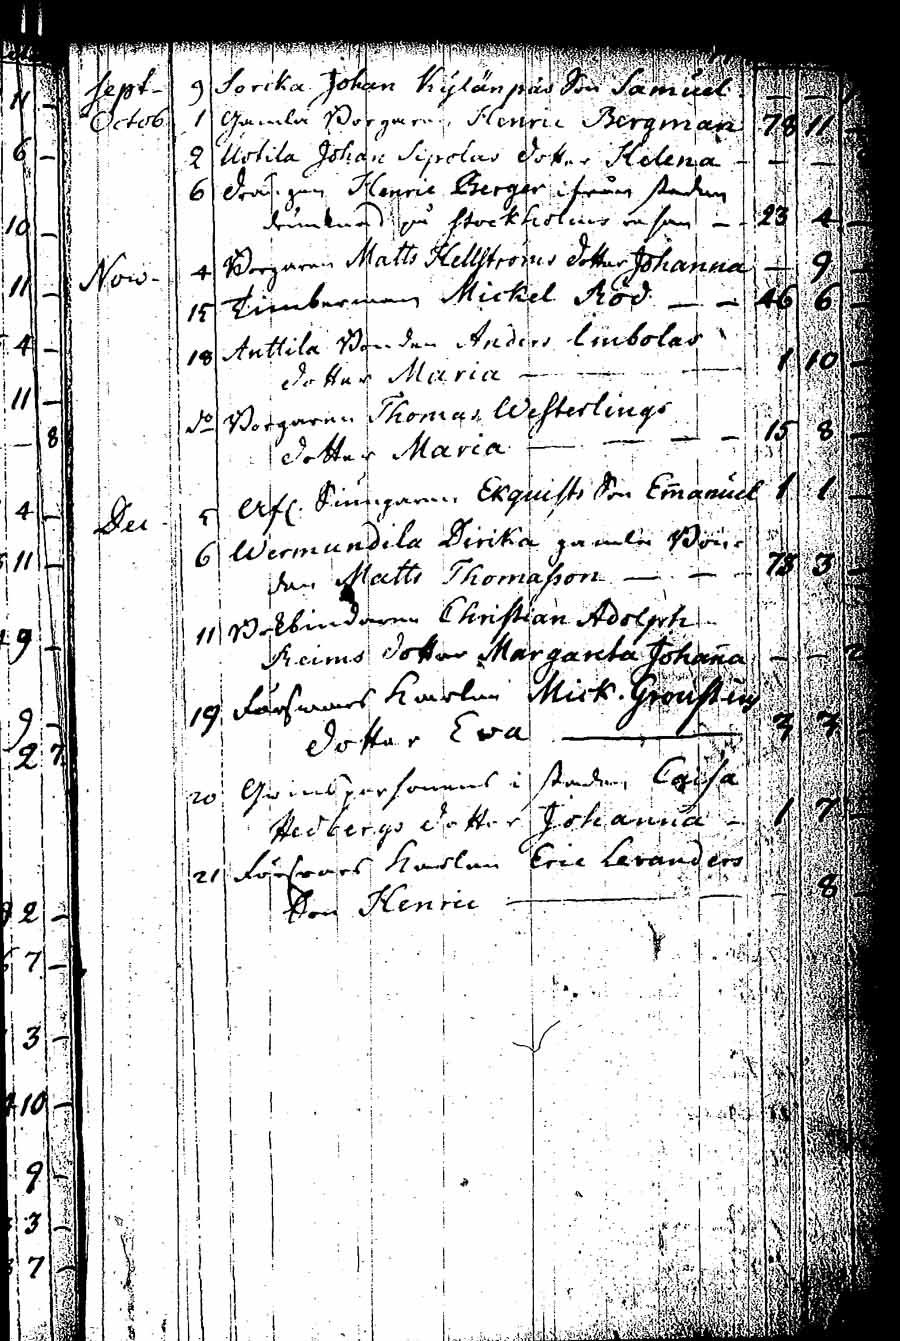 Sept- 9 Sorika Johan Kylänpäs Son Samuel - -
Octob. 1 Gamla Borgaren Henric Bergman 78 11 -
2 Uotila Johan Sipolas dotter Helena - - -
6 Drängen Henric Berger ifrån staden
på Stockholms - - 23 4 -
Nov- 4 Borgaren Matts Hellströms dotter Johanna - 9 -
15 Timberman Mickel Röd - - 46 6 -
18 Anttila Bonden Anders
dotter Maria - 1 10 -
do Borgaren Thomas Westerlings
dotter Maria - - - 15 8 -
Dec 5 Afl. Ekquists Son Emanuel 1 1 -
6 Wermundila Dirika gamla Bon-
den Matts Thomasson - - - 73 3 -
11 Bokbindaren Christian Adolph
Reims dotter Margareta Johanna - -
19 Försvars Karlen Mick.
dotter Eva - 3 3
20 i staden Caisa
Hedbergs dotter Johanna - 1 7 -
21 Försvars Karlen Eric Levanders
Son Henric - 8 -
11 -
6 -
10 -
11 -
4 -
11 -
- 8
4 -
11 -
9 -
9
2 7
2 -
7 -
3 -
10 -
9 -
3 -
7 -